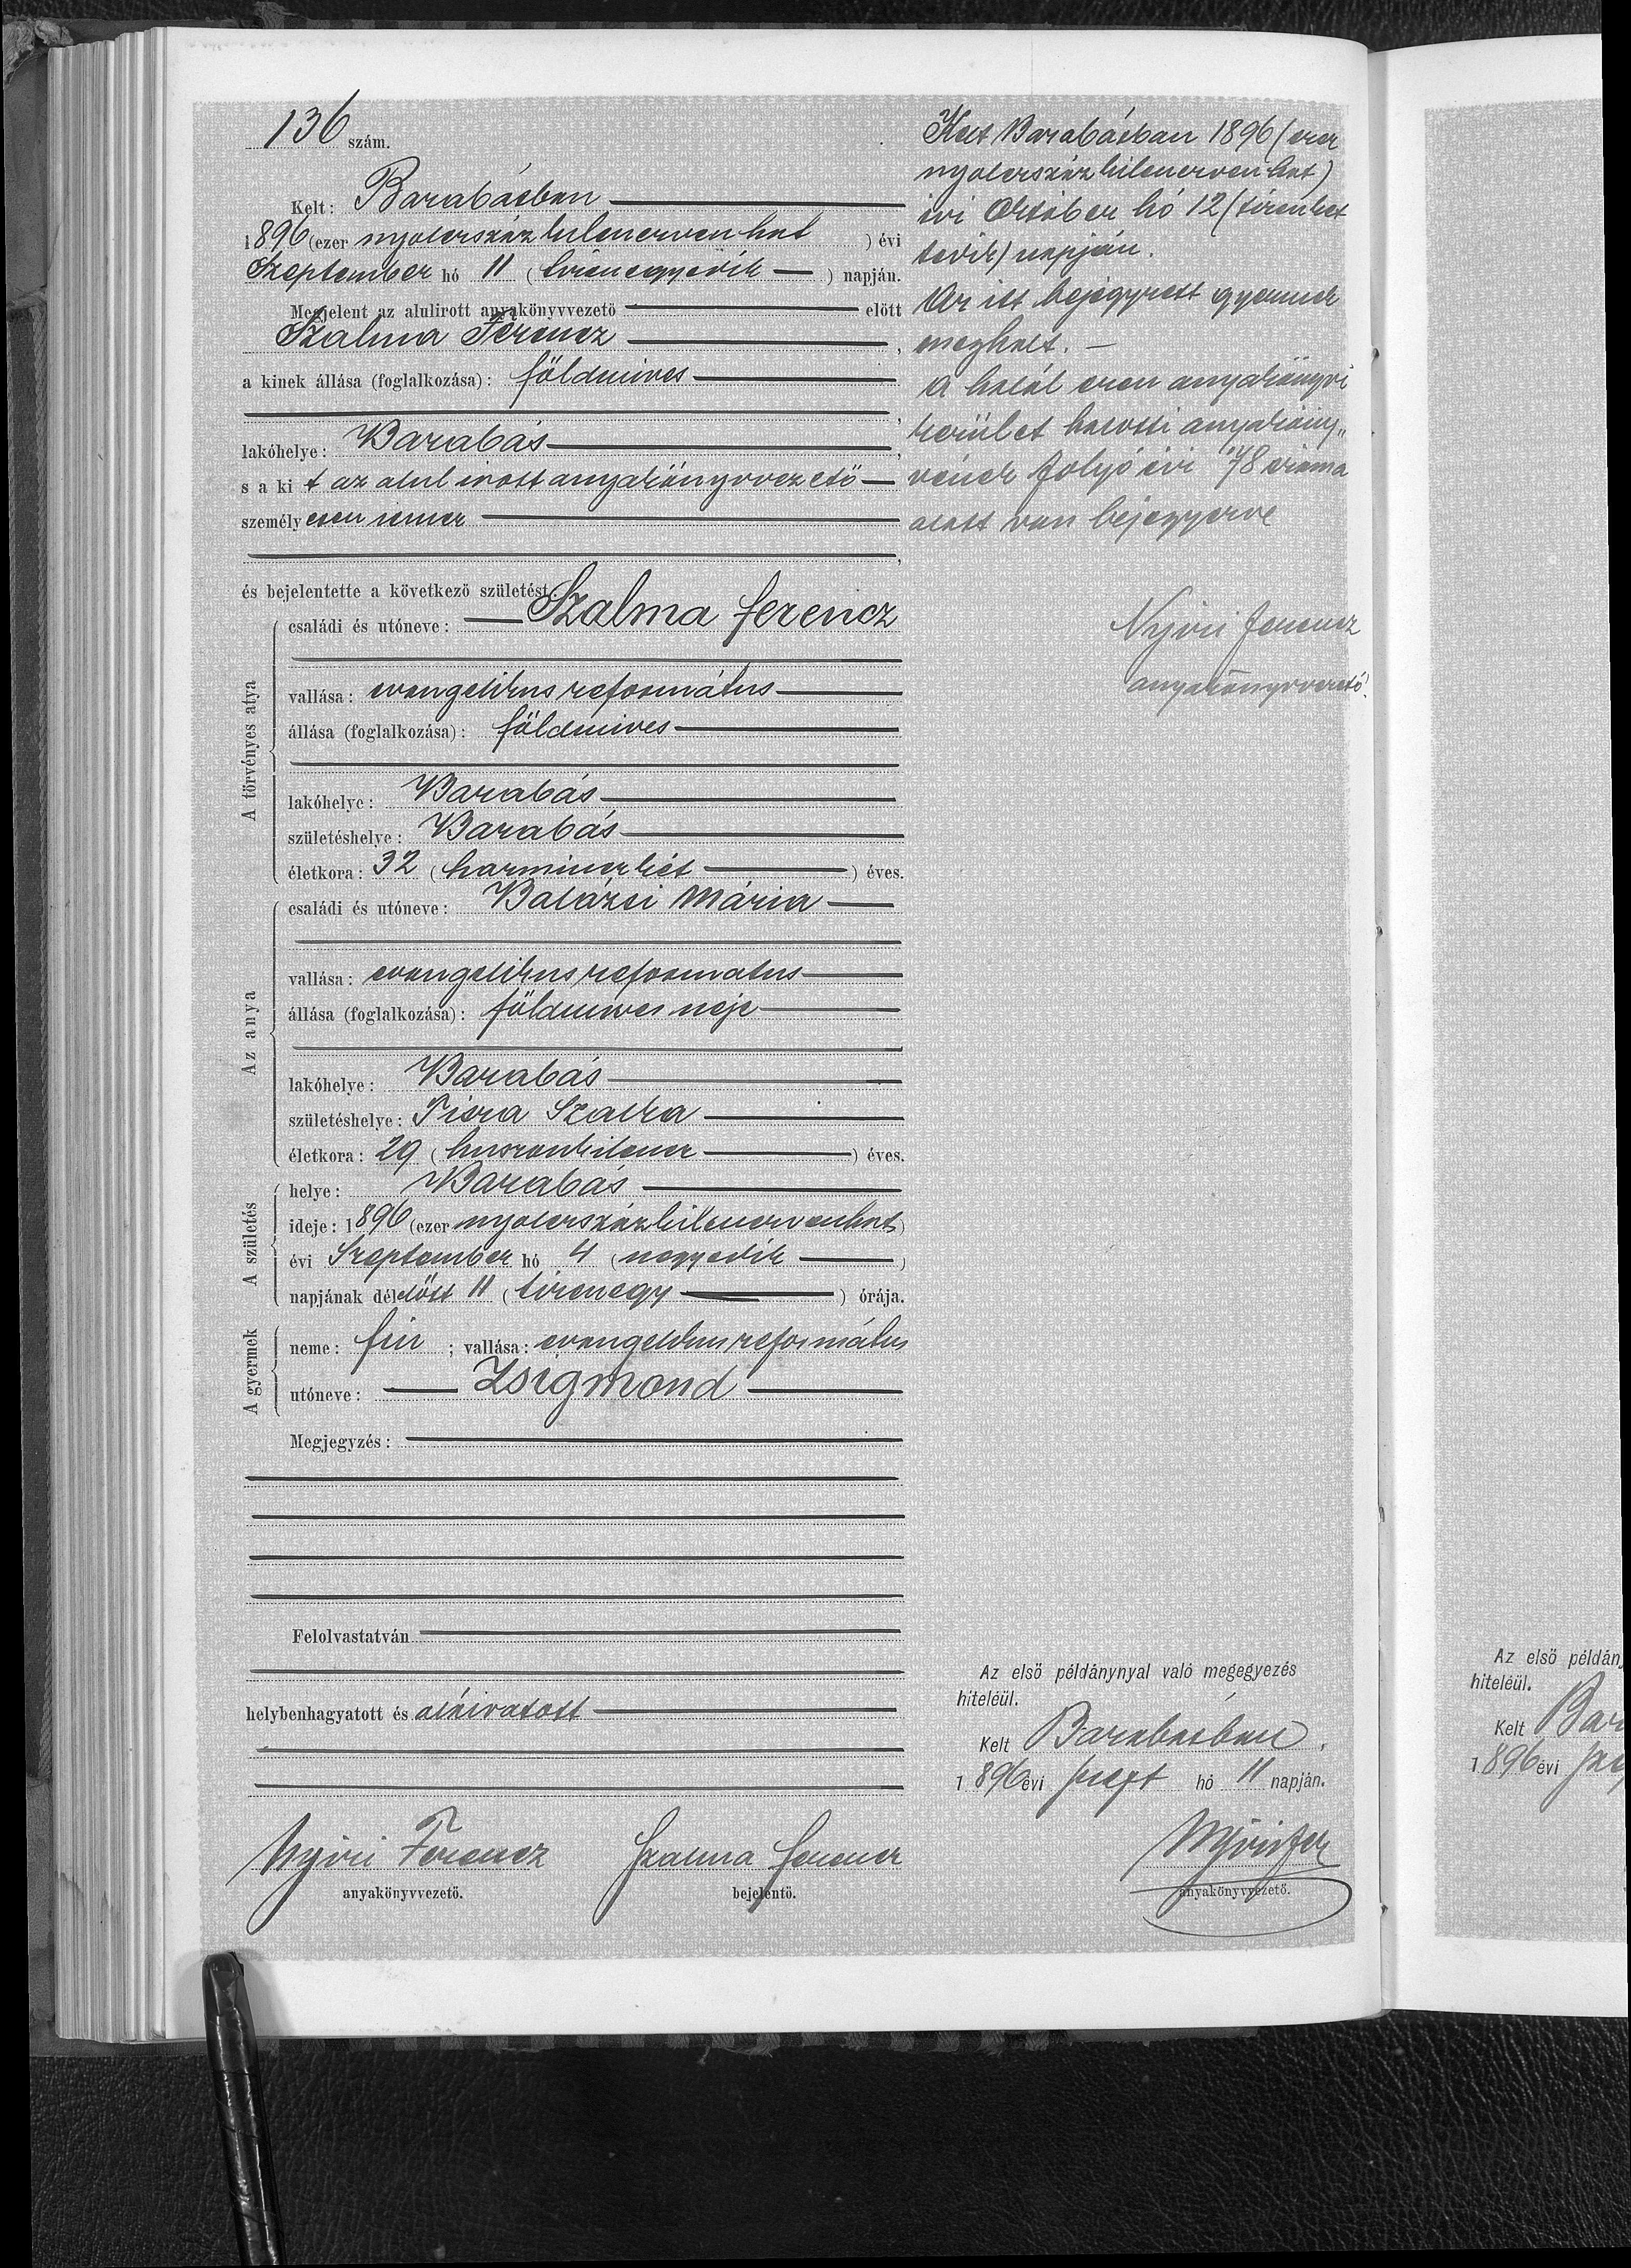 136 szám.
Kelt: Barabásban
1896 (ezer nyolczszáz kilenczven hat ) évi
Szeptember hó 11 ( tizenegyedik ) napján.
Megjelent az alulirott anyakönyvvezetö elött
Szalma Ferencz ,
a kinek állása (foglalkozása): földmives
,
lakóhelye: Barabás ,
s a ki t az alul irott anyakönyvvezető
személyesen ismer
,
és bejelentette a következö születést:
A törvényes atya
családi és utóneve: Szalma ferencz
vallása: evangelikus református
állása (foglalkozása): földmives
lakóhelye: Barabás
születéshelye: Barabás
életkora: 32 ( harminczkét ) éves.
Az anya
családi és utóneve: Balázsi Mária
vallása: evangelikus reformatus
állása (foglalkozása): földmives neje
lakóhelye: Barabás
születéshelye: Tisza Szalka
életkora: 29 ( huszonkilencz ) éves.
A születés
helye: Barabás
ideje: 1896 (ezer nyolczszázkilenczvenhat)
évi Szeptember hó 4 ( negyedik )
napjának délelőtt 11 ( tizenegy ) órája.
A gyermek
neme: fiu ; vallása: evangelikus református
utóneve: Zsigmond
Megjegyzés:
Felolvastatván
helybenhagyatott és aláiratott
Nyiri Ferencz
anyakönyvvezetö.
Szalma Ferencz
bejelentö.
Kelt Barabásban 1896 (ezer
nyolczszáz kilenczven hat)
évi Október hó 12 (tizenket
tedik) napján.
Az itt bejegyzett gyermek
meghalt. —
A halál ezen anyakönyvi
kerület halotti anyaköny„
vének folyó évi 78 száma
alatt van bejegyezve
Nyiri ferencz
anyakönyvvezető.
Az elsö példánynyal való megegyezés
hiteléül.
Kelt Barabásban.
1896 évi szept hó 11 napján.
Nyiri fer
anyakönyvvezetö.
Az elsö példány
hiteléül.
Kelt Bar
1896 évi